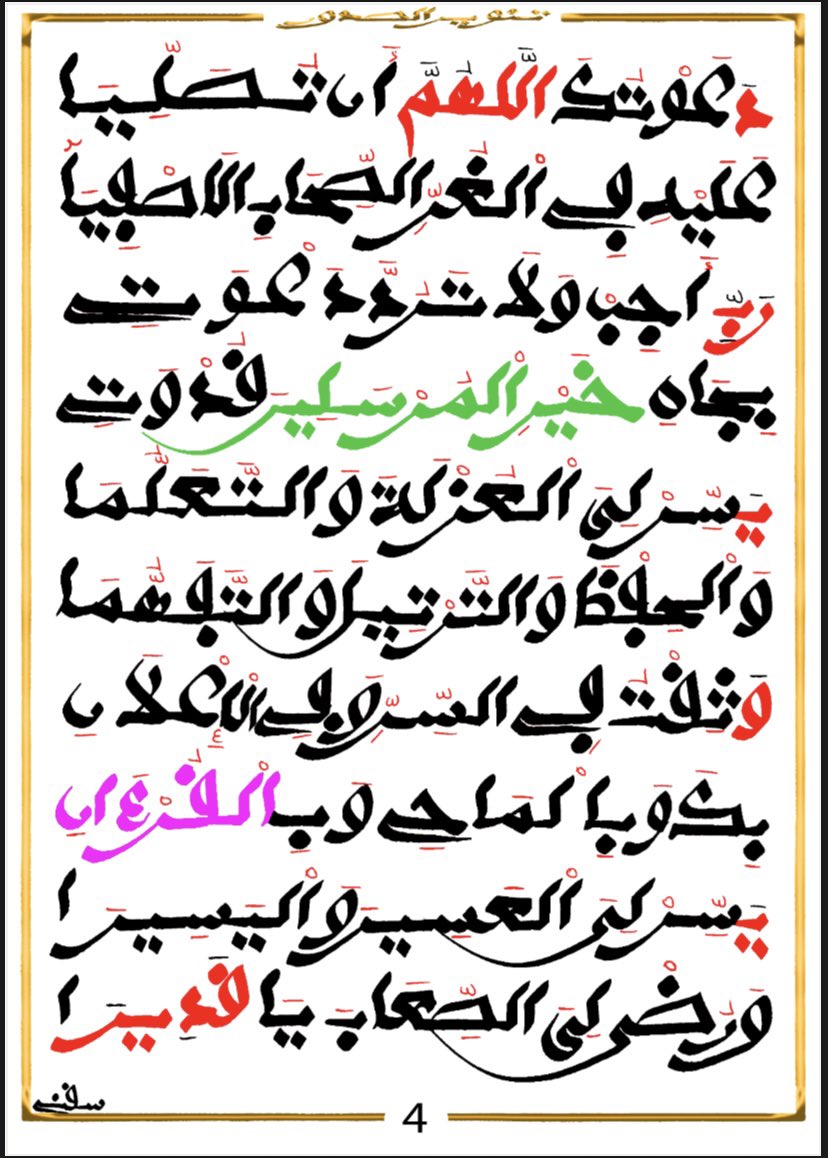 تنوير الصدور
دَعَوْتُكَ اللَّهُمَّ أَن تُصَلِّيَا
عَلَيْهِ فِي الْغُرِّ الصِّحَابِ الَاصْفِيَا
رَبِّ أَجِبْ وَلَا تَرُدَّ دَعْوَتِي
بِجَاهِ خَيْرِ الْمُرْسَلِينَ قُدْوَتِي
يَسِّرْ لِيَ الْعُزْلَةَ وَالتَّعَلُّمَا
وَالْحِفْظَ وَالتَّرْتِيلَ وَالتَّفَهُّمَا
وَثِقْتُ فِي السِّرِّ وَفِي الْإِعْلَانِ
بِكَ وَبِالْمَاحِي وَبِالْقُرْءَانِ
يَسِّرْ لِيَ الْعَسِيرَ وَالْيَسِيرَا
وَرُضْ لِيَ الصِّعَابَ يَا قَدِيرَا
4